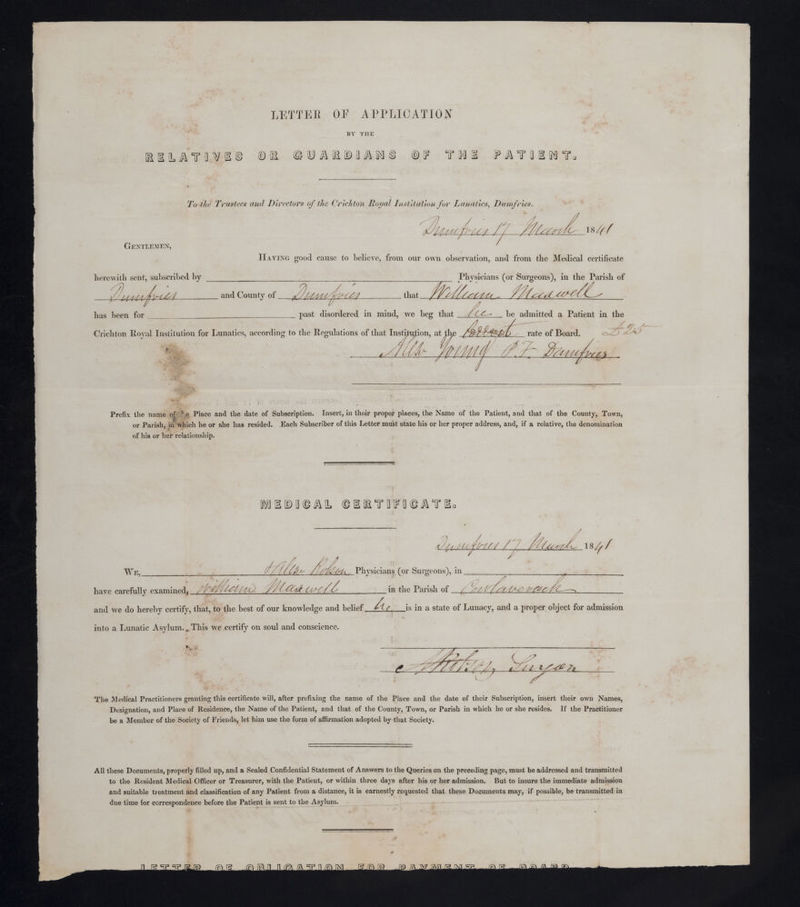 LETTER OF APPLICATION
BY THE
RELATIVES OR GUARDIANS OF THE PATIENT.
To the Trustees and Directors of the Crichton Royal Institution for Lunatics, Dumfries.
Dumfries 17 March 1841
GENTLEMEN,
HAVING good cause to believe, from our own observation, and from the Medical certificate
herewith sent, subscribed by Physicians (or Surgeons), in the Parish of
Dumfries and County of Dumfries that William Maxwell
has been for past disordered in mind, we beg that he be admitted a Patient in the
Crichton Royal Institution for Lunatics, according to the Regulations of that Institution, at the rate of Board. £25
Alexr Young P.F. Dumfries
Prefix the name of the Place and the date of Subscription. Insert, in their proper places, the Name of the Patient, and that of the County, Town,
or Parish, in which he or she has resided. Each Subscriber of this Letter must state his or her proper address, and, if a relative, the denomination
of his or her relationship.
MEDICAL CERTIFICATE.
Dumfries 17 March 1841
WE, Physicians (or Surgeons), in
have carefully examined, William Maxwell in the Parish of Caerlaverock
and we do hereby certify, that, to the best of our knowledge and belief he is in a state of Lunacy, and a proper object for admission
into a Lunatic Asylum. This we certify on soul and conscience.
Surgeon
The Medical Practitioners granting this certificate will, after prefixing the name of the Place and the date of their Subscription, insert their own Names,
Designation, and Place of Residence, the Name of the Patient, and that of the County, Town, or Parish in which he or she resides. If the Practitioner
be a Member of the Society of Friends, let him use the form of affirmation adopted by that Society.
All these Documents, properly filled up, and a Sealed Confidential Statement of Answers to the Queries on the preceding page, must be addressed and transmitted
to the Resident Medical Officer or Treasurer, with the Patient, or within three days after his or her admission. But to insure the immediate admission
and suitable treatment and classification of any Patient from a distance, it is earnestly requested that these Documents may, if possible, be transmitted in
due time for correspondence before the Patient is sent to the Asylum.
LETTER OF OBLIGATION FOR PAYMENT OF BOARD.